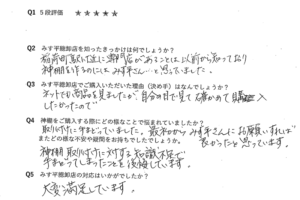 Q1 5段評価 ★★★★★
Q2 みす平総卸店を知ったきっかけは何でしょうか?
稲荷町駅付近に専門店があることは以前から知っており
神棚を作るのにはみす平さん…と思っていました。
Q3 みす平総卸店でご購入いただいた理由(決め手)はなんでしょうか?
ネットでも商品を見ましたが、自分の目で見て確かめて購入
したかったので
Q4 神棚をご購入する際にどの様なことで悩まれていましたか?
またどの様な不安や疑問をお持ちでしたでしょうか。
取り付けに手まどっていました。最初からみす平さんにお願いすれば
良かったと思っています。
神棚取り付けに対する知識不足で
手まどってしまったことを後悔しています。
Q5 みす平総卸店の対応はいかがでしたでしょうか?
大変満足しています。